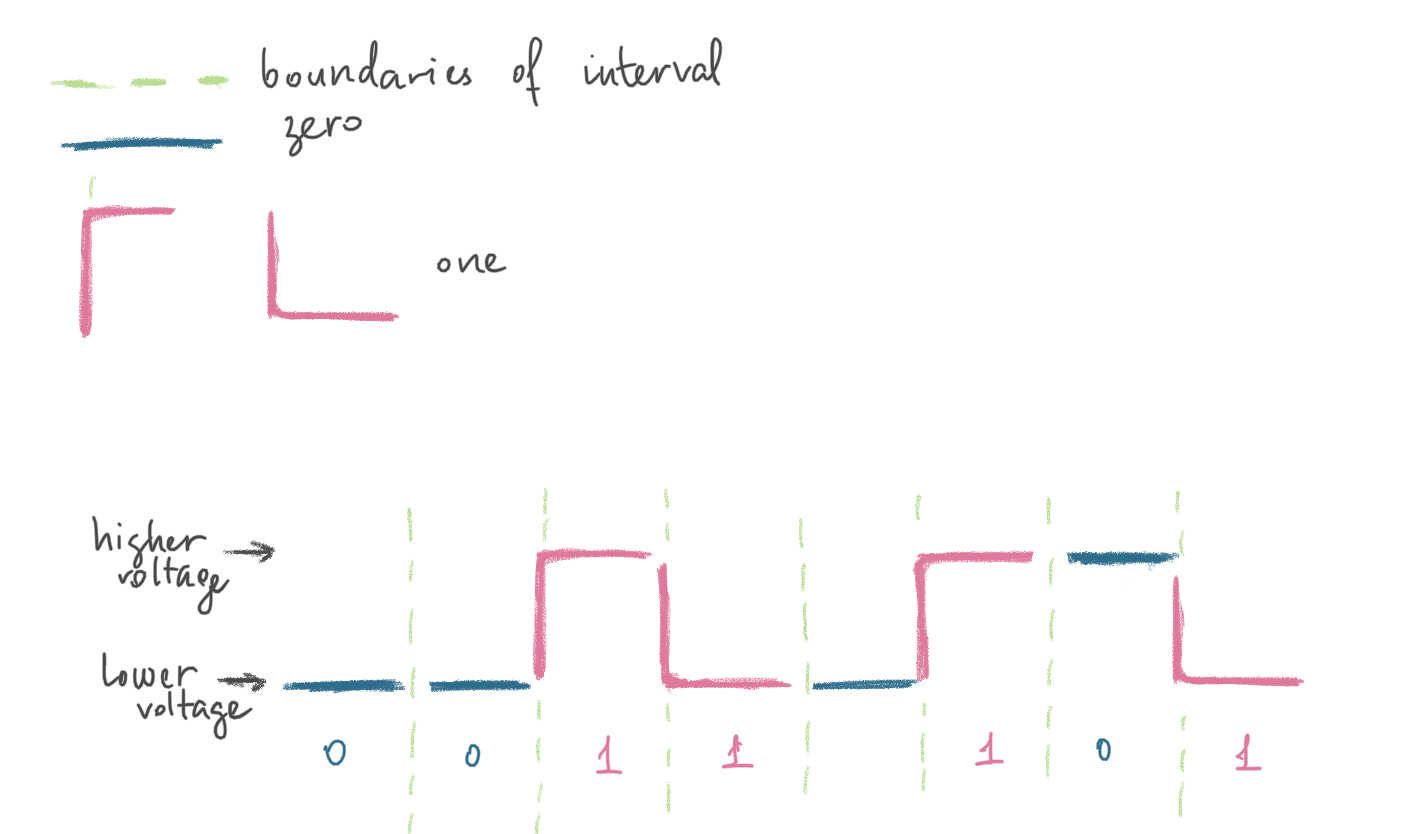 boundaries of interval
zero
one
higher
voltage
lower
voltage
0 0 1 1 1 0 1